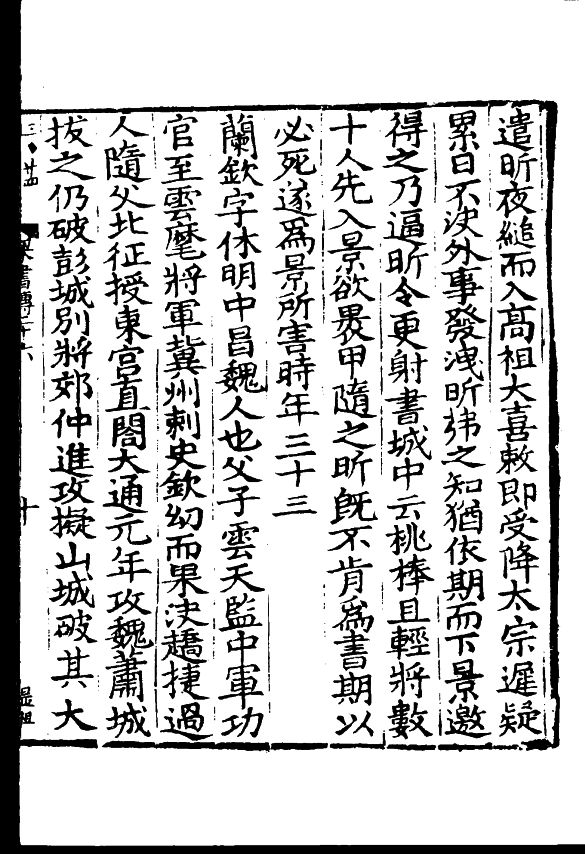 遣昕夜縋而入高祖大喜敕即受降太宗遲疑
累日不決外事發洩昕弗之知猶依期而下景邀
得之乃逼昕令更射書城中云桃棒且輕將數
十人先入景欲裹甲隨之昕旣不肯爲書期以
必死遂爲景所害時年三十三
蘭欽字休明中昌魏人也父子雲天監中軍功
官至雲麾將軍冀州刺史欽幼而果決趫捷過
人隨父北征授東宮直閤大通元年攻魏蕭城
拔之仍破彭城別將郊仲進攻擬山城破其大
梁書傳二十六
十